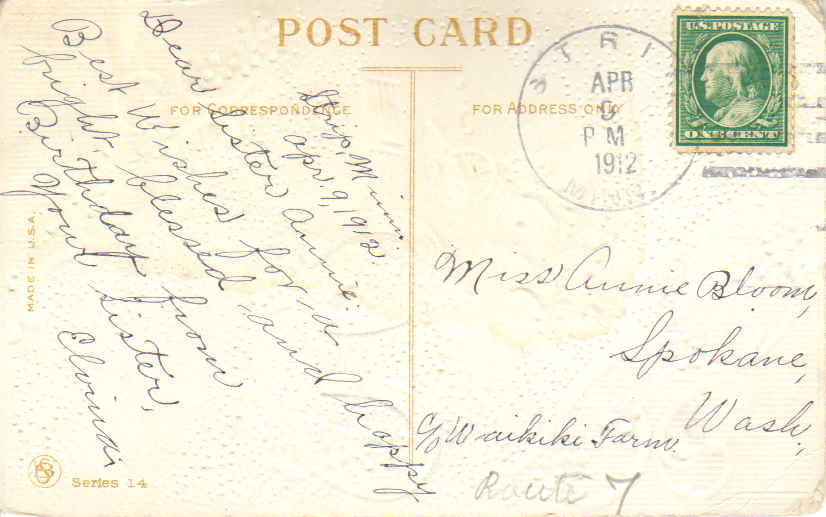 POST CARD
FOR CORRESPONDENCE
FOR ADDRESS ONLY
U.S. POSTAGE
ONE CENT
STRI
APR
9
PM
1912
MINN
Strip, Minn.
Apr. 9, 1912.
Dear Sister Annie.
Best Wishes for a
bright, blessed and happy
Birthday from
Your sister,
Elvinda
Miss Annie Bloom,
Spokane,
Wash.,
c/o Waikiki Farm.
Route 7
MADE IN U.S.A.
Series 14